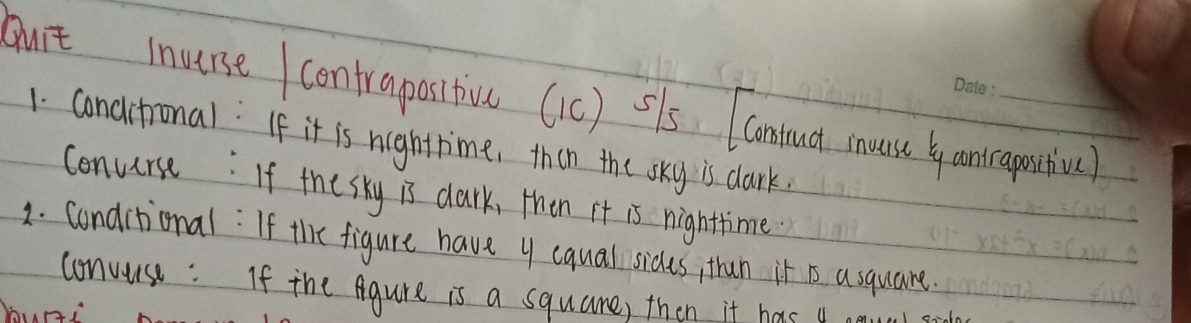 Quiz Inverse / Contrapositive (IC) 5/5 [Construct inverse & contrapositive)
Date:
1. Conditional : If it is nighttime, then the sky is dark.
Converse : If the sky is dark, then it is nighttime.
2. Conditional : If the figure have 4 equal sides, then it is a square.
Converse : If the figure is a square, then it has 4 equal sides